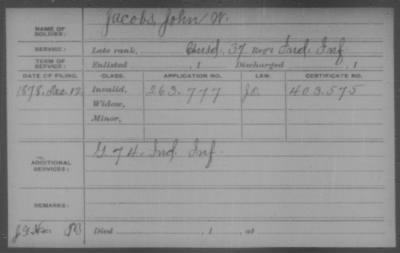 Jacobs, John W.
NAME OF SOLDIER:
SERVICE: Late rank, 37 Reg't Ind. Inf.
TERM OF SERVICE: Enlisted , 1 Discharged , 1
DATE OF FILING. CLASS. APPLICATION NO. LAW. CERTIFICATE NO.
1878, Dec. 12 Invalid, 263.777 403.575
Widow,
Minor,
ADDITIONAL SERVICES: G 74. Ind. Inf.
REMARKS:
Died , 1 , at